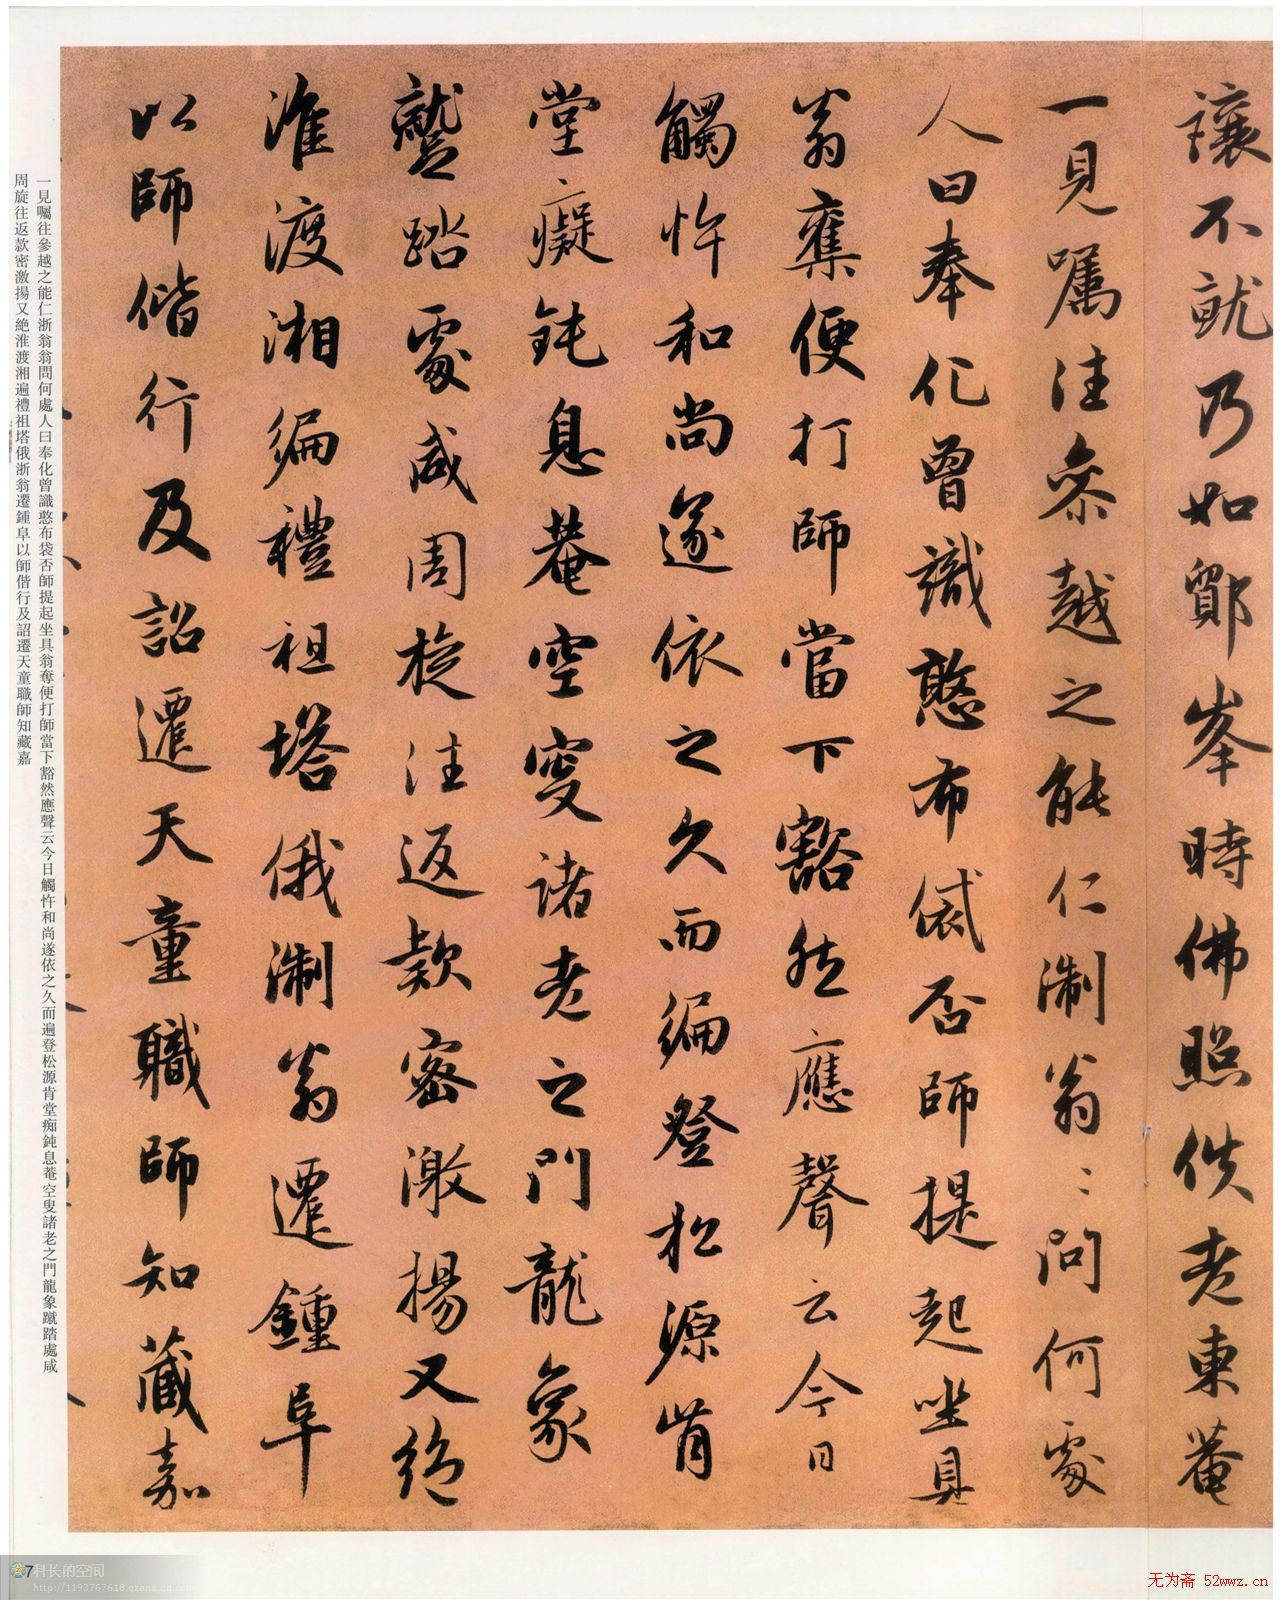 讓不就乃如鄮峯時佛照佚老東菴
一見囑往叅越之能仁淛翁〻問何處
人曰奉化曾識憨布袋否師提起坐具
翁奪便打師當下豁然應聲云今日
觸忤和尚遂依之久而徧登松源肯
堂癡鈍息菴空叟諸老之門龍象
蹴踏處咸周旋往返款密激揚又絶
淮渡湘徧禮祖塔俄淛翁遷鍾阜
以師偕行及詔遷天童職師知藏嘉
一見囑往參越之能仁浙翁翁問何處人曰奉化曾識憨布袋否師提起坐具翁奪便打師當下豁然應聲云今日觸忤和尚遂依之久而遍登松源肯堂痴鈍息菴空叟諸老之門龍象蹴踏處咸
周旋往返款密激揚又絶淮渡湘遍禮祖塔俄浙翁遷鍾阜以師偕行及詔遷天童職師知藏嘉
7
科长的空间
http://1193767618.qzone.qq.com
无为斋 52wwz.cn